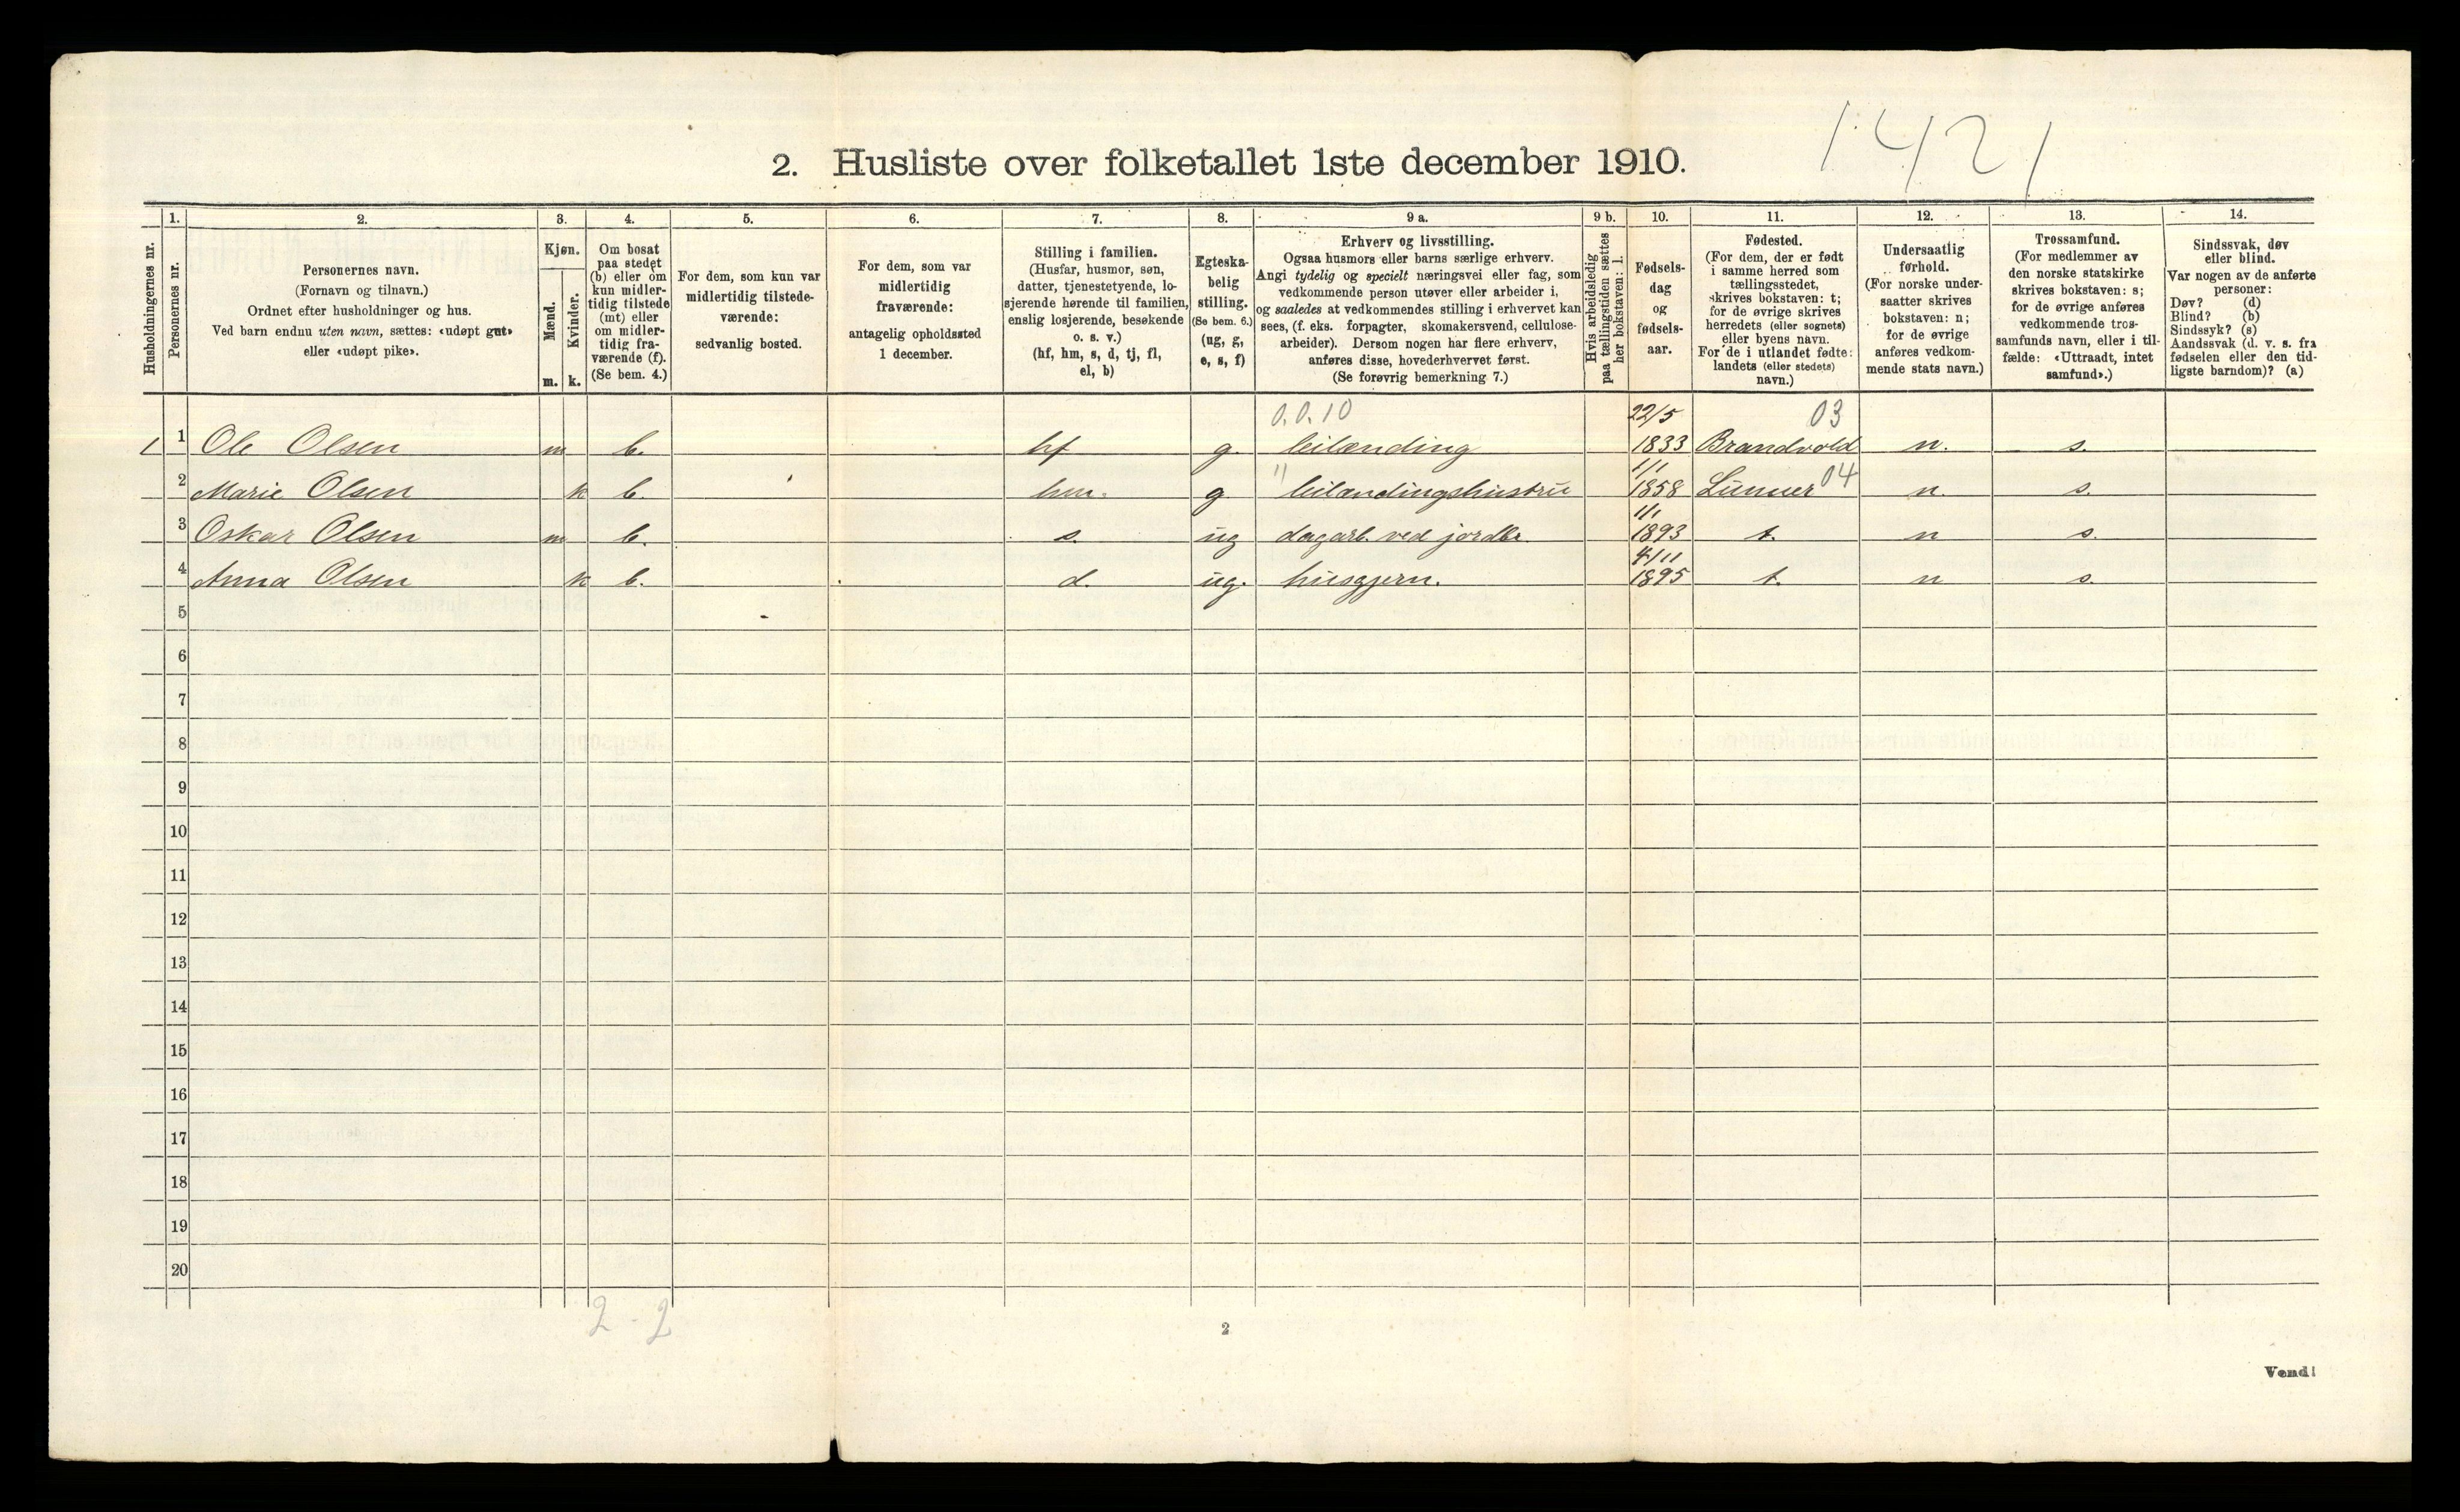 1421
2. Husliste over folketallet 1ste december 1910.
1. 2. 3. 4. 5. 6. 7. 8. 9 a. 9 b. 10. 11. 12. 13. 14.
Husholdningernes nr.
Personernes nr.
Personernes navn.
(Fornavn og tilnavn.)
Ordnet efter husholdninger og hus.
Ved barn endnu uten navn, sættes: «udøpt gut»
eller «udøpt pike».
Kjøn.
Mænd.
Kvinder.
m. k.
Om bosat
paa stedet
(b) eller om
kun midler-
tidig tilstede
(mt) eller
om midler-
tidig fra-
værende (f).
(Se bem. 4.)
For dem, som kun var
midlertidig tilstede-
værende:
sedvanlig bosted.
For dem, som var
midlertidig
fraværende:
antagelig opholdssted
1 december.
Stilling i familien.
(Husfar, husmor, søn,
datter, tjenestetyende, lo-
sjerende hørende til familien,
enslig losjerende, besøkende
o. s. v.)
(hf, hm, s, d, tj, fl,
el, b)
Egteska-
belig
stilling.
(Se bem. 6.)
(ug, g,
e, s, f)
Erhverv og livsstilling.
Ogsaa husmors eller barns særlige erhverv.
Angi tydelig og specielt næringsvei eller fag, som
vedkommende person utøver eller arbeider i,
og saaledes at vedkommendes stilling i erhvervet kan
sees, (f. eks. forpagter, skomakersvend, cellulose-
arbeider). Dersom nogen har flere erhverv,
anføres disse, hovederhvervet først.
(Se forøvrig bemerkning 7.)
Hvis arbeidsledig
paa tællingstiden sættes
her bokstaven: l.
Fødsels-
dag
og
fødsels-
aar.
Fødested.
(For dem, der er født
i samme herred som
tællingsstedet,
skrives bokstaven: t;
for de øvrige skrives
herredets (eller sognets)
eller byens navn.
For de i utlandet fødte:
landets (eller stedets)
navn.)
Undersaatlig
forhold.
(For norske under-
saatter skrives
bokstaven: n;
for de øvrige
anføres vedkom-
mende stats navn.)
Trossamfund.
(For medlemmer av
den norske statskirke
skrives bokstaven: s;
for de øvrige anføres
vedkommende tros-
samfunds navn, eller i til-
fælde: «Uttraadt, intet
samfund».)
Sindssvak, døv
eller blind.
Var nogen av de anførte
personer:
Døv? (d)
Blind? (b)
Sindssyk? (s)
Aandssvak (d. v. s. fra
fødselen eller den tid-
ligste barndom)? (a)
0.0.10 22/5 03
1 1 Ole Olsen m b. hf g. leilænding 1833 Brandvold n. s.
" 1/1 04
2 Marie Olsen k b. hm. g leilændingshustru 1858 Lunner n. s.
1/1
3 Oskar Olsen m b. s. ug dagarb. ved jordbr. 1893 t. n s.
4/11
4 Anna Olsen k b. d. ug. husgjern. 1895 t. n s.
5
6
7
8
9
10
11
12
13
14
15
16
17
18
19
20
2 - 2
2
Vend!